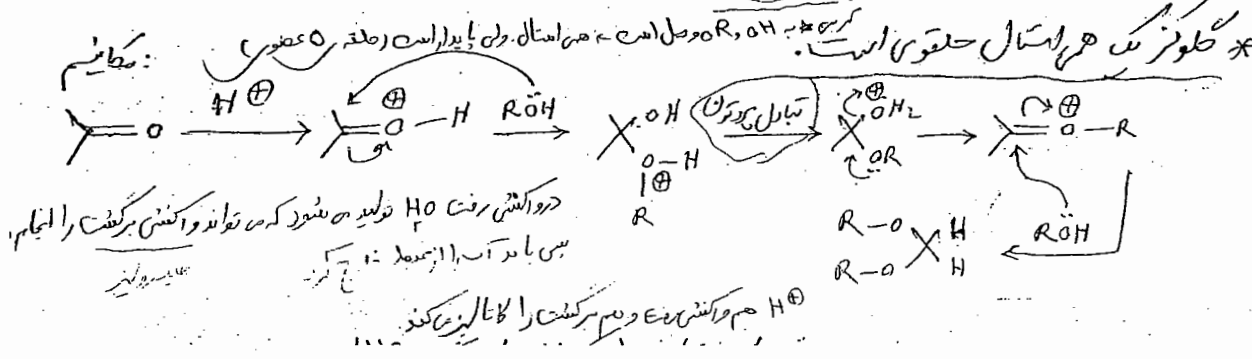 * گلوکز یک همی استال حلقوی است. کربن به OR و OH وصل است همی استال. ولی پایدار است (حلقه ی 5 عضوی)
مکانیسم :
=O H⊕ =O⊕—H RÖH OH O—H ⊕ R تبادل پروتون ⊕OH₂ OR =O⊕—R
RÖH R—O R—O H H
در واکنش رفت H₂O تولید می شود که می تواند واکنش برگشت را انجام
پس باید آب را از محیط خارج کرد.
H⊕ هم واکنش رفت و هم برگشت را کاتالیز می کند